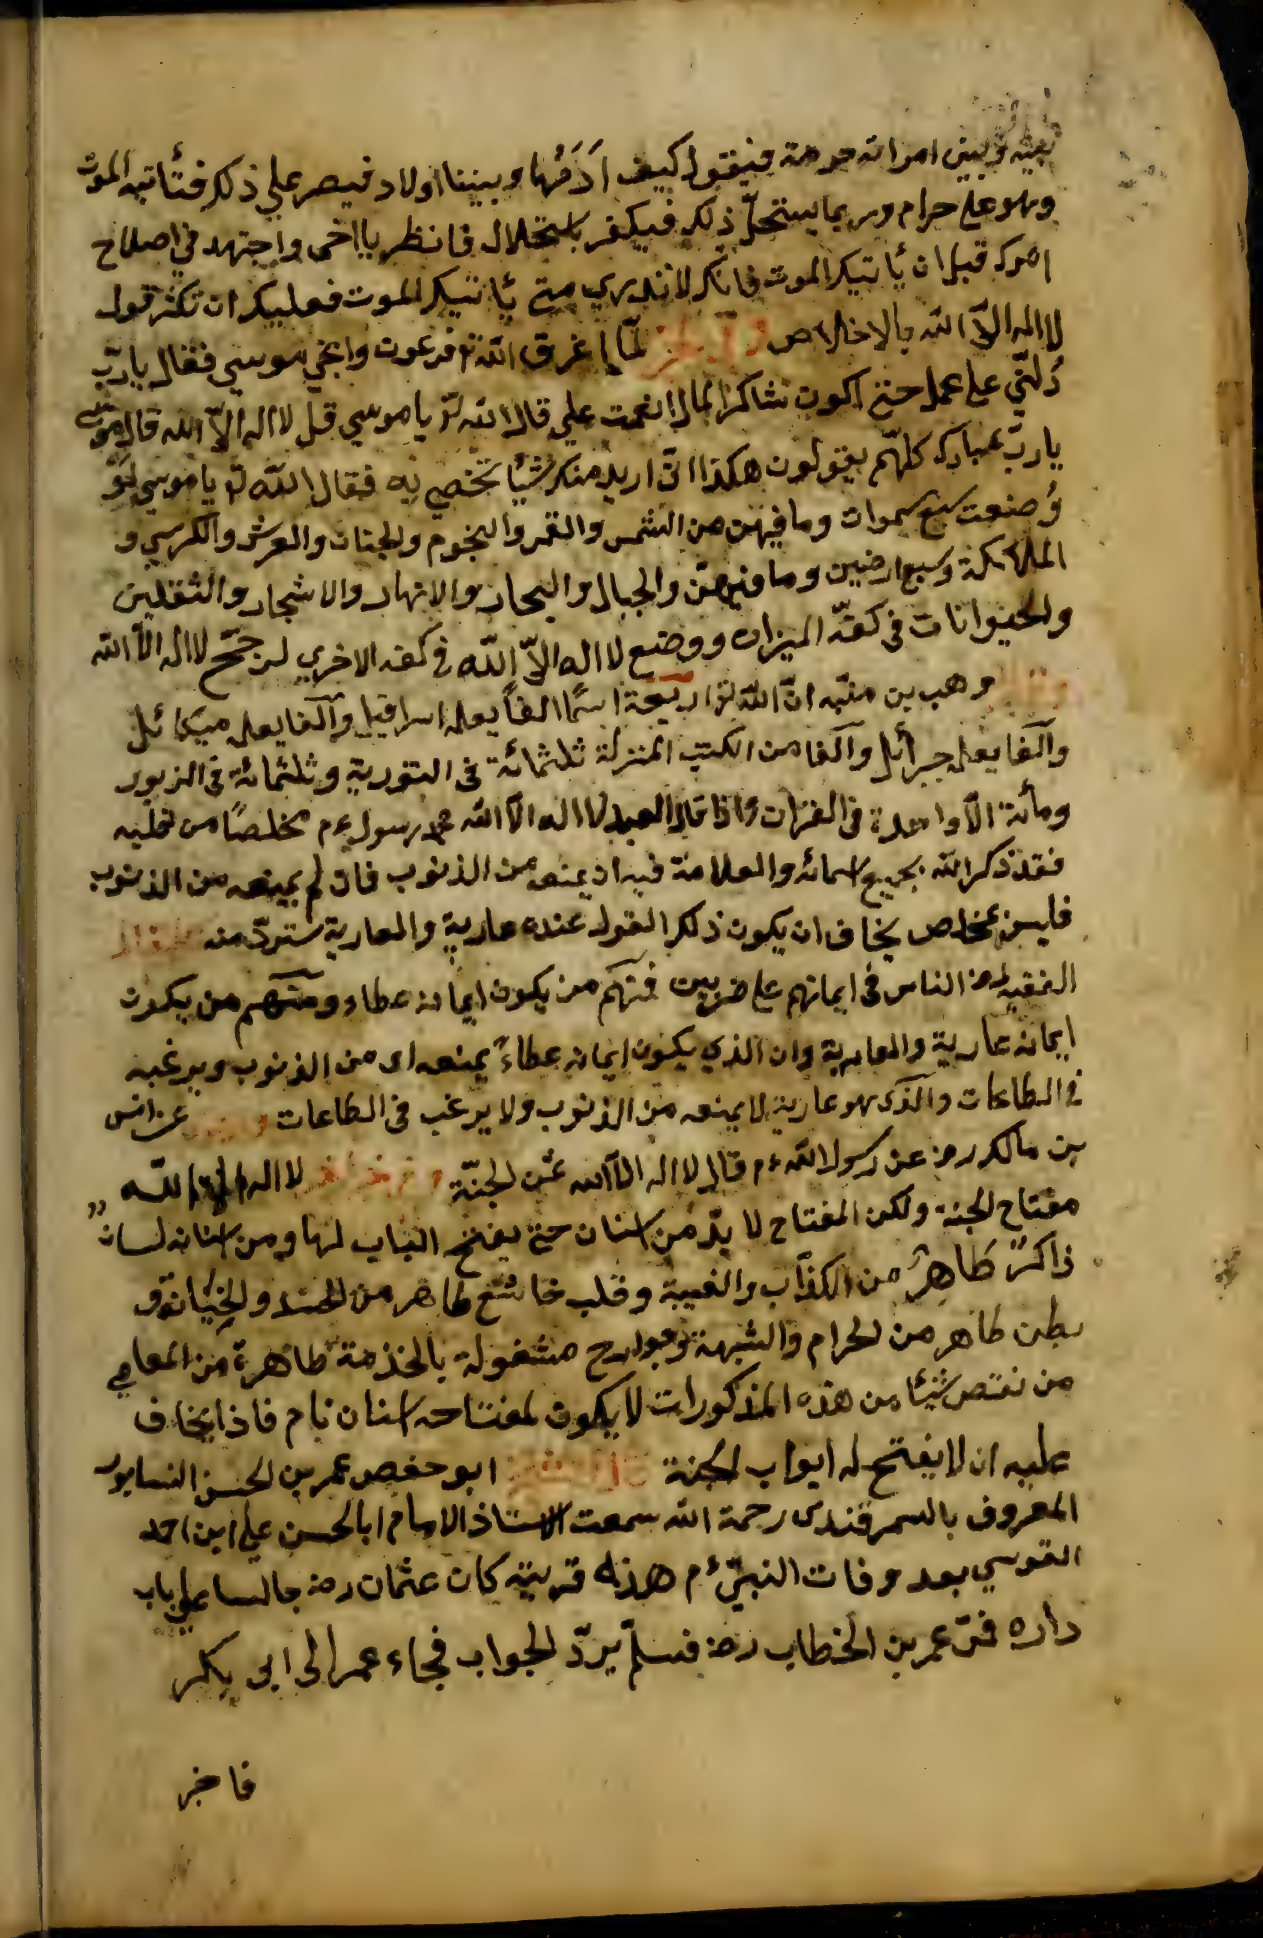 بينه وبين امراته حرمة فيقول كيف اَدَعُها وبيننا اولاد فيصر علي ذلك فتأتيه الموت
وهو علي حرام وربما يستحلّ ذلك فيكفر باستحلال فانظر يا اخي واجتهد في اصلاح
امرك قبل ان يأتيك الموت فانك لا تدري متي يأتيك الموت فعليك ان تكثر قول
لا اله الاّ الله بالاخلاص وفي الخبر لمّا اغرق الله تع فرعون وانجي موسي فقال يا ربّ
دُلّني علي عمل حتي اكون شاكرا لما انعمت علي قال الله تع يا موسي قل لا اله الاّ الله قال موسي
يا ربّ عبادك كلّهم يقولون هكذا انّي اريد منك شيئا تخصني به فقال الله تع يا موسي لَوْ
وُضعت سبع سموات وما فيهن من الشمس والقمر والنجوم والجنان والعرش والكرسي و
الملائكة وسبع ارضين وما فيهنّ والجبال والبحار والانهار والاشجار والثقلين
والحيوانات في كفّة الميزان ووضع لا اله الاّ اللّه في كفه الاخري لرجّح لا اله الاّ الله
وقال وهب بن منبّه انّ الله تع اربعة اسمًا الفاً يعلم اسرافيل وآلفا يعلم ميكائل
وآلفا يعلم جبرأئل وآلفا من الكتب المنزلة ثلثمائة في التورية وثلثمائة في الزبور
ومأئة الاّ واحدة في الفرقان واذا قال العبد لا اله الاّ الله محمد رسول ءم مخلصًا من قلبه
فقد ذكر الله بجميع اسمائه والعلامة فيه ان يمنعه من الذنوب فان لم يمنعه من الذنوب
فليس بمخلص يخاف ان يكون ذلك القول عنده عارية والعارية ستردّ منه
الفقيه الناس في ايمانهم علي ضربين فمنهم من يكون ايمانه عطاء ومنهم من يكون
ايمانه عارية والعارية وان الذي يكون ايمانه عطاءً يمنعه اي من الذنوب ويرغبه
في الطاعات والذي هو عارية لا يمنعه من الذنوب ولا يرغب في الطاعات عن انس
بن مالك رض عن رسول الله ءم قال لا اله الاّ الله ثمن الجنّة وفي خبر اخر لا اله الا اللّه
مفتاح الجنة ولكن المفتاح لا بدّ من اسنان حتي يفتح الباب لها ومن اسنانه لسان
ذاكرٌ طاهرٌ من الكذاب والغيبة وقلب خاشع طاهر من الحسد والخيانة و
بطن طاهر من الحرام والشبهة وجوارح مشغولة بالخدمة طاهرة من المعاصي
من نقص شيئا من هذه المذكورات لا يكون لمفتاحه اسنان نام فاذا يخاف
عليه ان لا يفتح له ابواب الجنة ابو حفص عمر بن الحسن النسابور
المعروف بالسمرقندي رحمة الله سمعت الاستاذ الامام ابا الحسن علي ابن احمد
القوسي بعد وفات النبيّ ءم هذه قريبة كان عثمان رض جالسا علي باب
داره فمرّ عمر بن الخطاب رض فسلم يردّ الجواب فجاء عمر الي ابي بكر
فاخبر